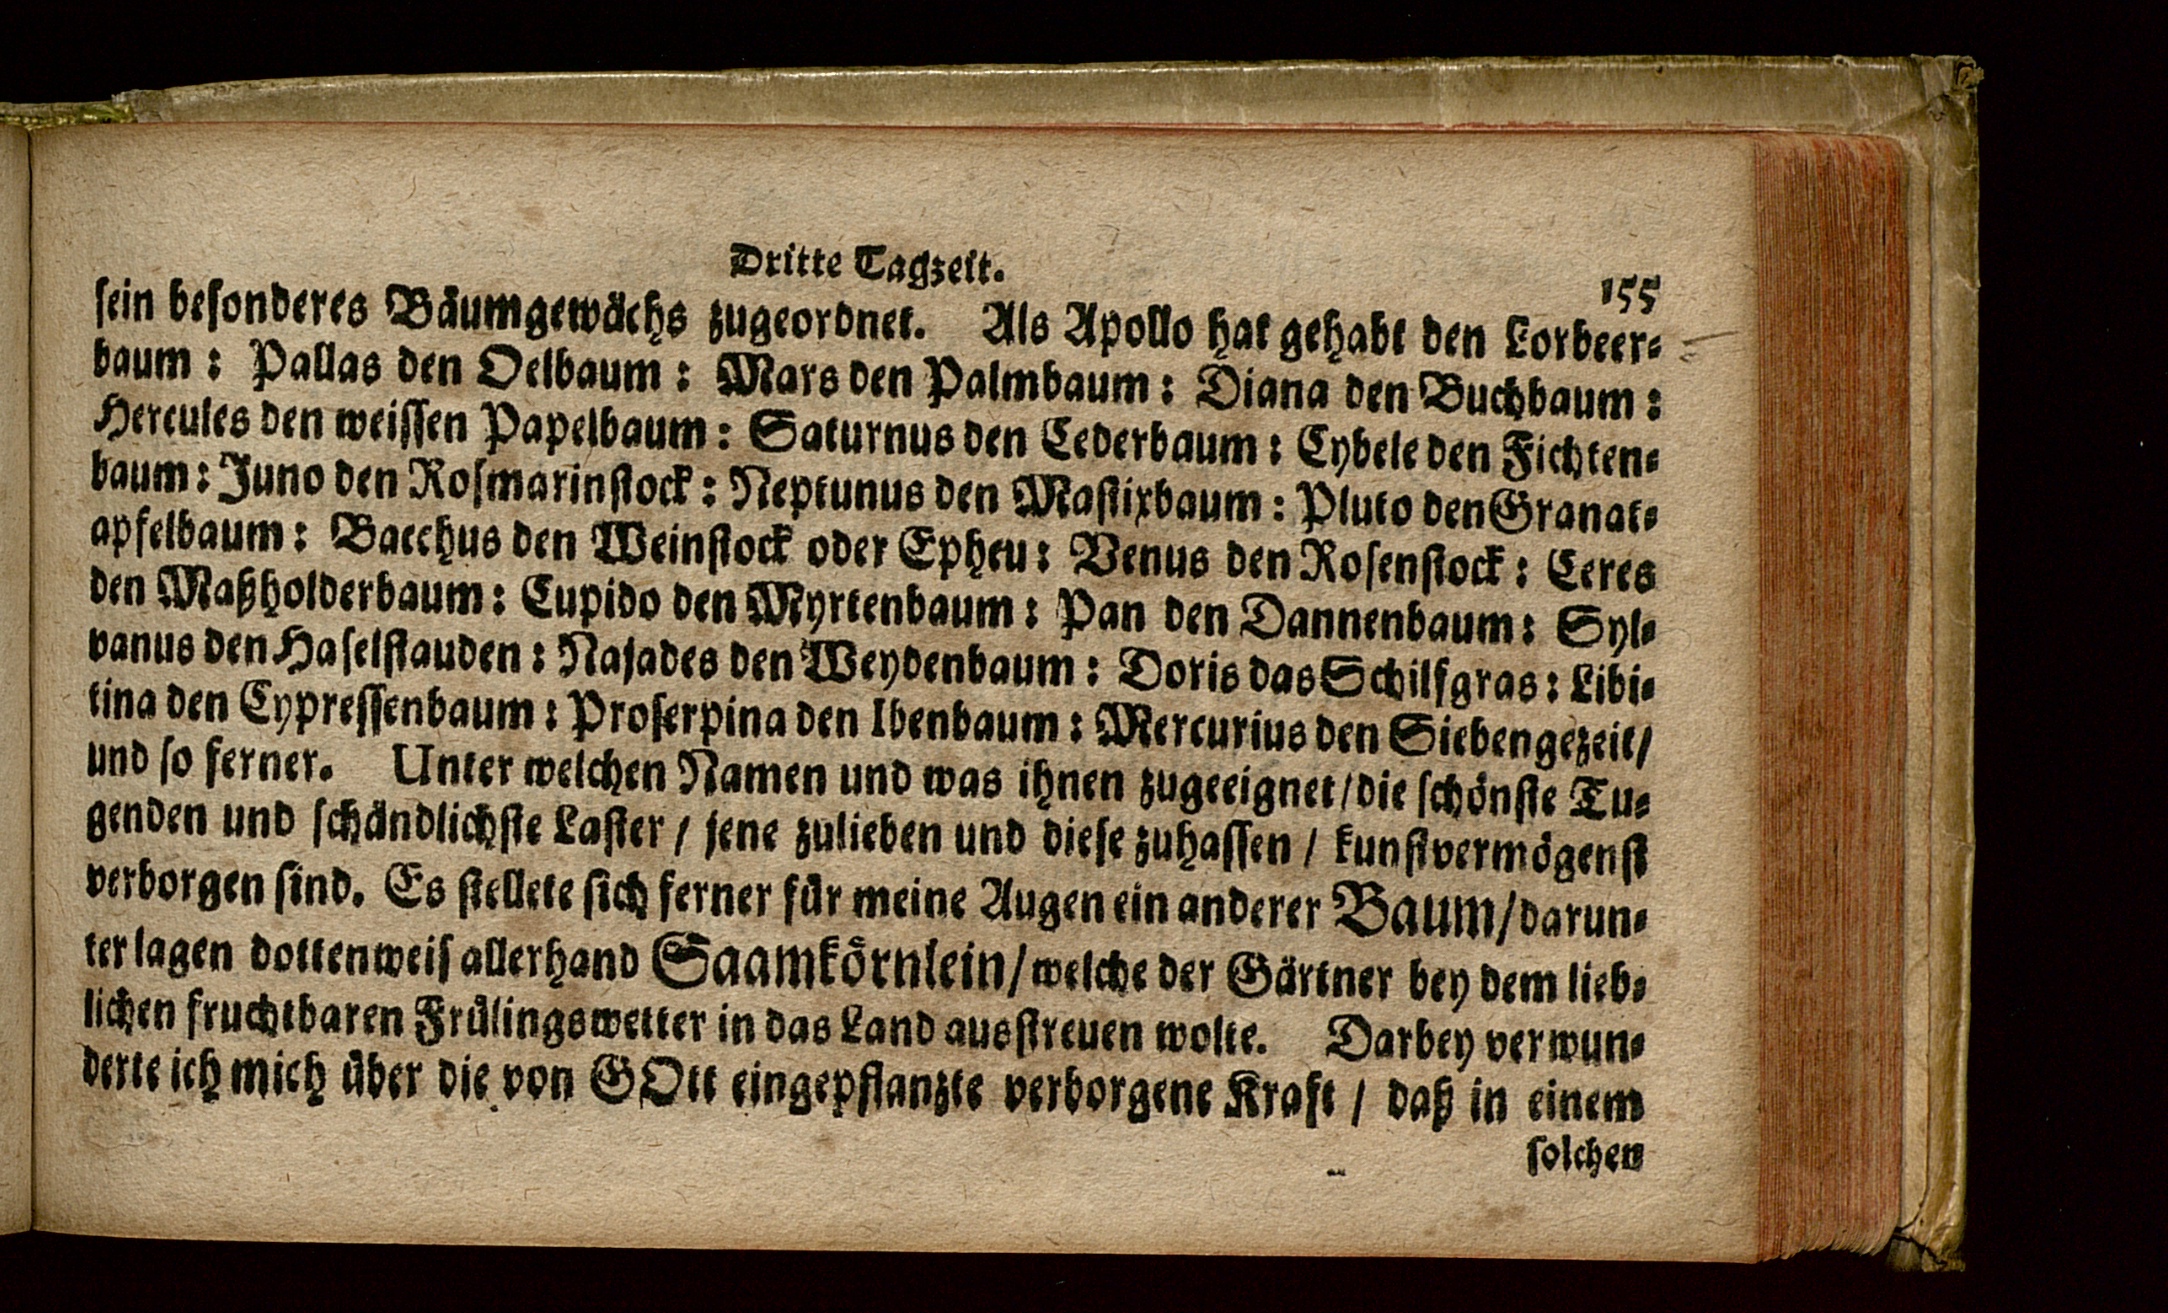 Dritte Tagzeit.
155
ſein beſonderes Bäumgewächs zugeordnet. Als Apollo hat gehabt den Lorbeer⸗
baum : Pallas den Oelbaum : Mars den Palmbaum : Diana den Buchbaum :
Hercules den weiſſen Papelbaum : Saturnus den Cederbaum : Cybele den Fichten⸗
baum : Juno den Roſmarinſtock : Neptunus den Maſtixbaum : Pluto den Granat⸗
apfelbaum : Bacchus den Weinſtock oder Epheu : Venus den Roſenſtock : Ceres
den Maßholderbaum : Cupido den Myrtenbaum : Pan den Dannenbaum : Syl⸗
vanus den Haſelſtauden : Najades den Weydenbaum : Doris das Schilfgras : Libi⸗
tina den Cypreſſenbaum : Proſerpina den Ibenbaum : Mercurius den Siebengezeit/
und ſo ferner. Unter welchen Namen und was ihnen zugeeignet/die ſchönſte Tu⸗
genden und ſchändlichſte Laſter / jene zulieben und dieſe zuhaſſen / kunſtvermögenſt
verborgen ſind. Es ſtellete ſich ferner für meine Augen ein anderer Baum/darun⸗
ter lagen dottenweiſ allerhand Saamkörnlein/welche der Gärtner bey dem lieb⸗
lichen fruchtbaren Frülingswetter in das Land ausſtreuen wolte. Darbey verwun⸗
derte ich mich über die von GOtt eingepflanzte verborgene Kraft / daß in einem
ſolchen